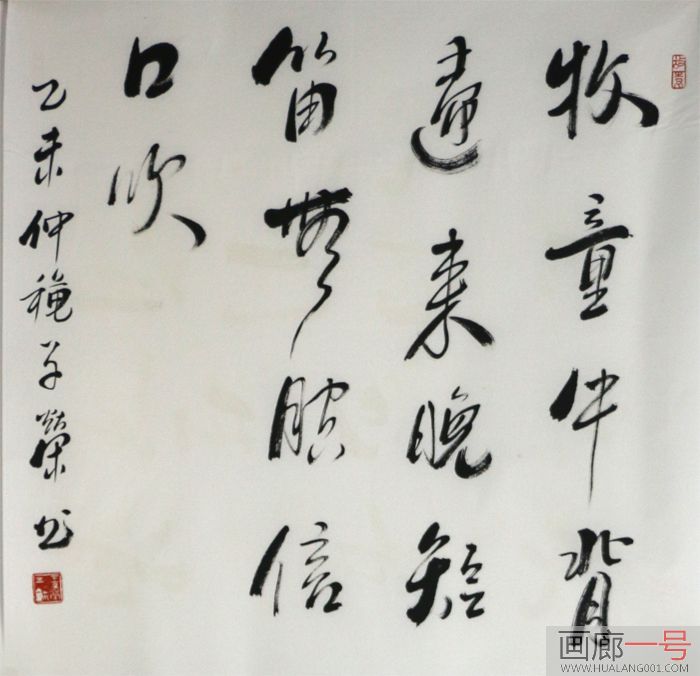 牧童牛背
歸来晚短
笛無腔信
口吹
乙未仲穐子榮书
画廊一号
WWW.HUALANG001.COM